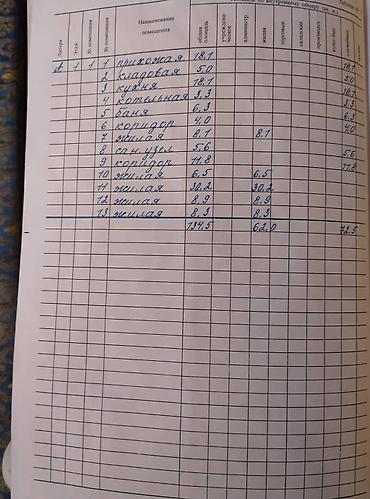 по внутреннему обмеру (кв. м.)
Литера Этаж № помещения № помещения Наименование помещения общая площадь учрежден- ческая жилая админист. торговые складские производст.
А 1 1 1 прихожая 18,1 18,1
2 кладовая 5,0 5,0
3 кухня 18,1 18,1
4 котельная 3,3 3,3
5 баня 6,3 6,3
6 коридор 4,0 4,0
7 жилая 8,1 8,1
8 сан.узел 5,6 5,6
9 коридор 11,8 11,8
10 жилая 6,5 6,5
11 жилая 30,2 30,2
12 жилая 8,9 8,9
13 жилая 8,3 8,3
134,5 62,0 72,5